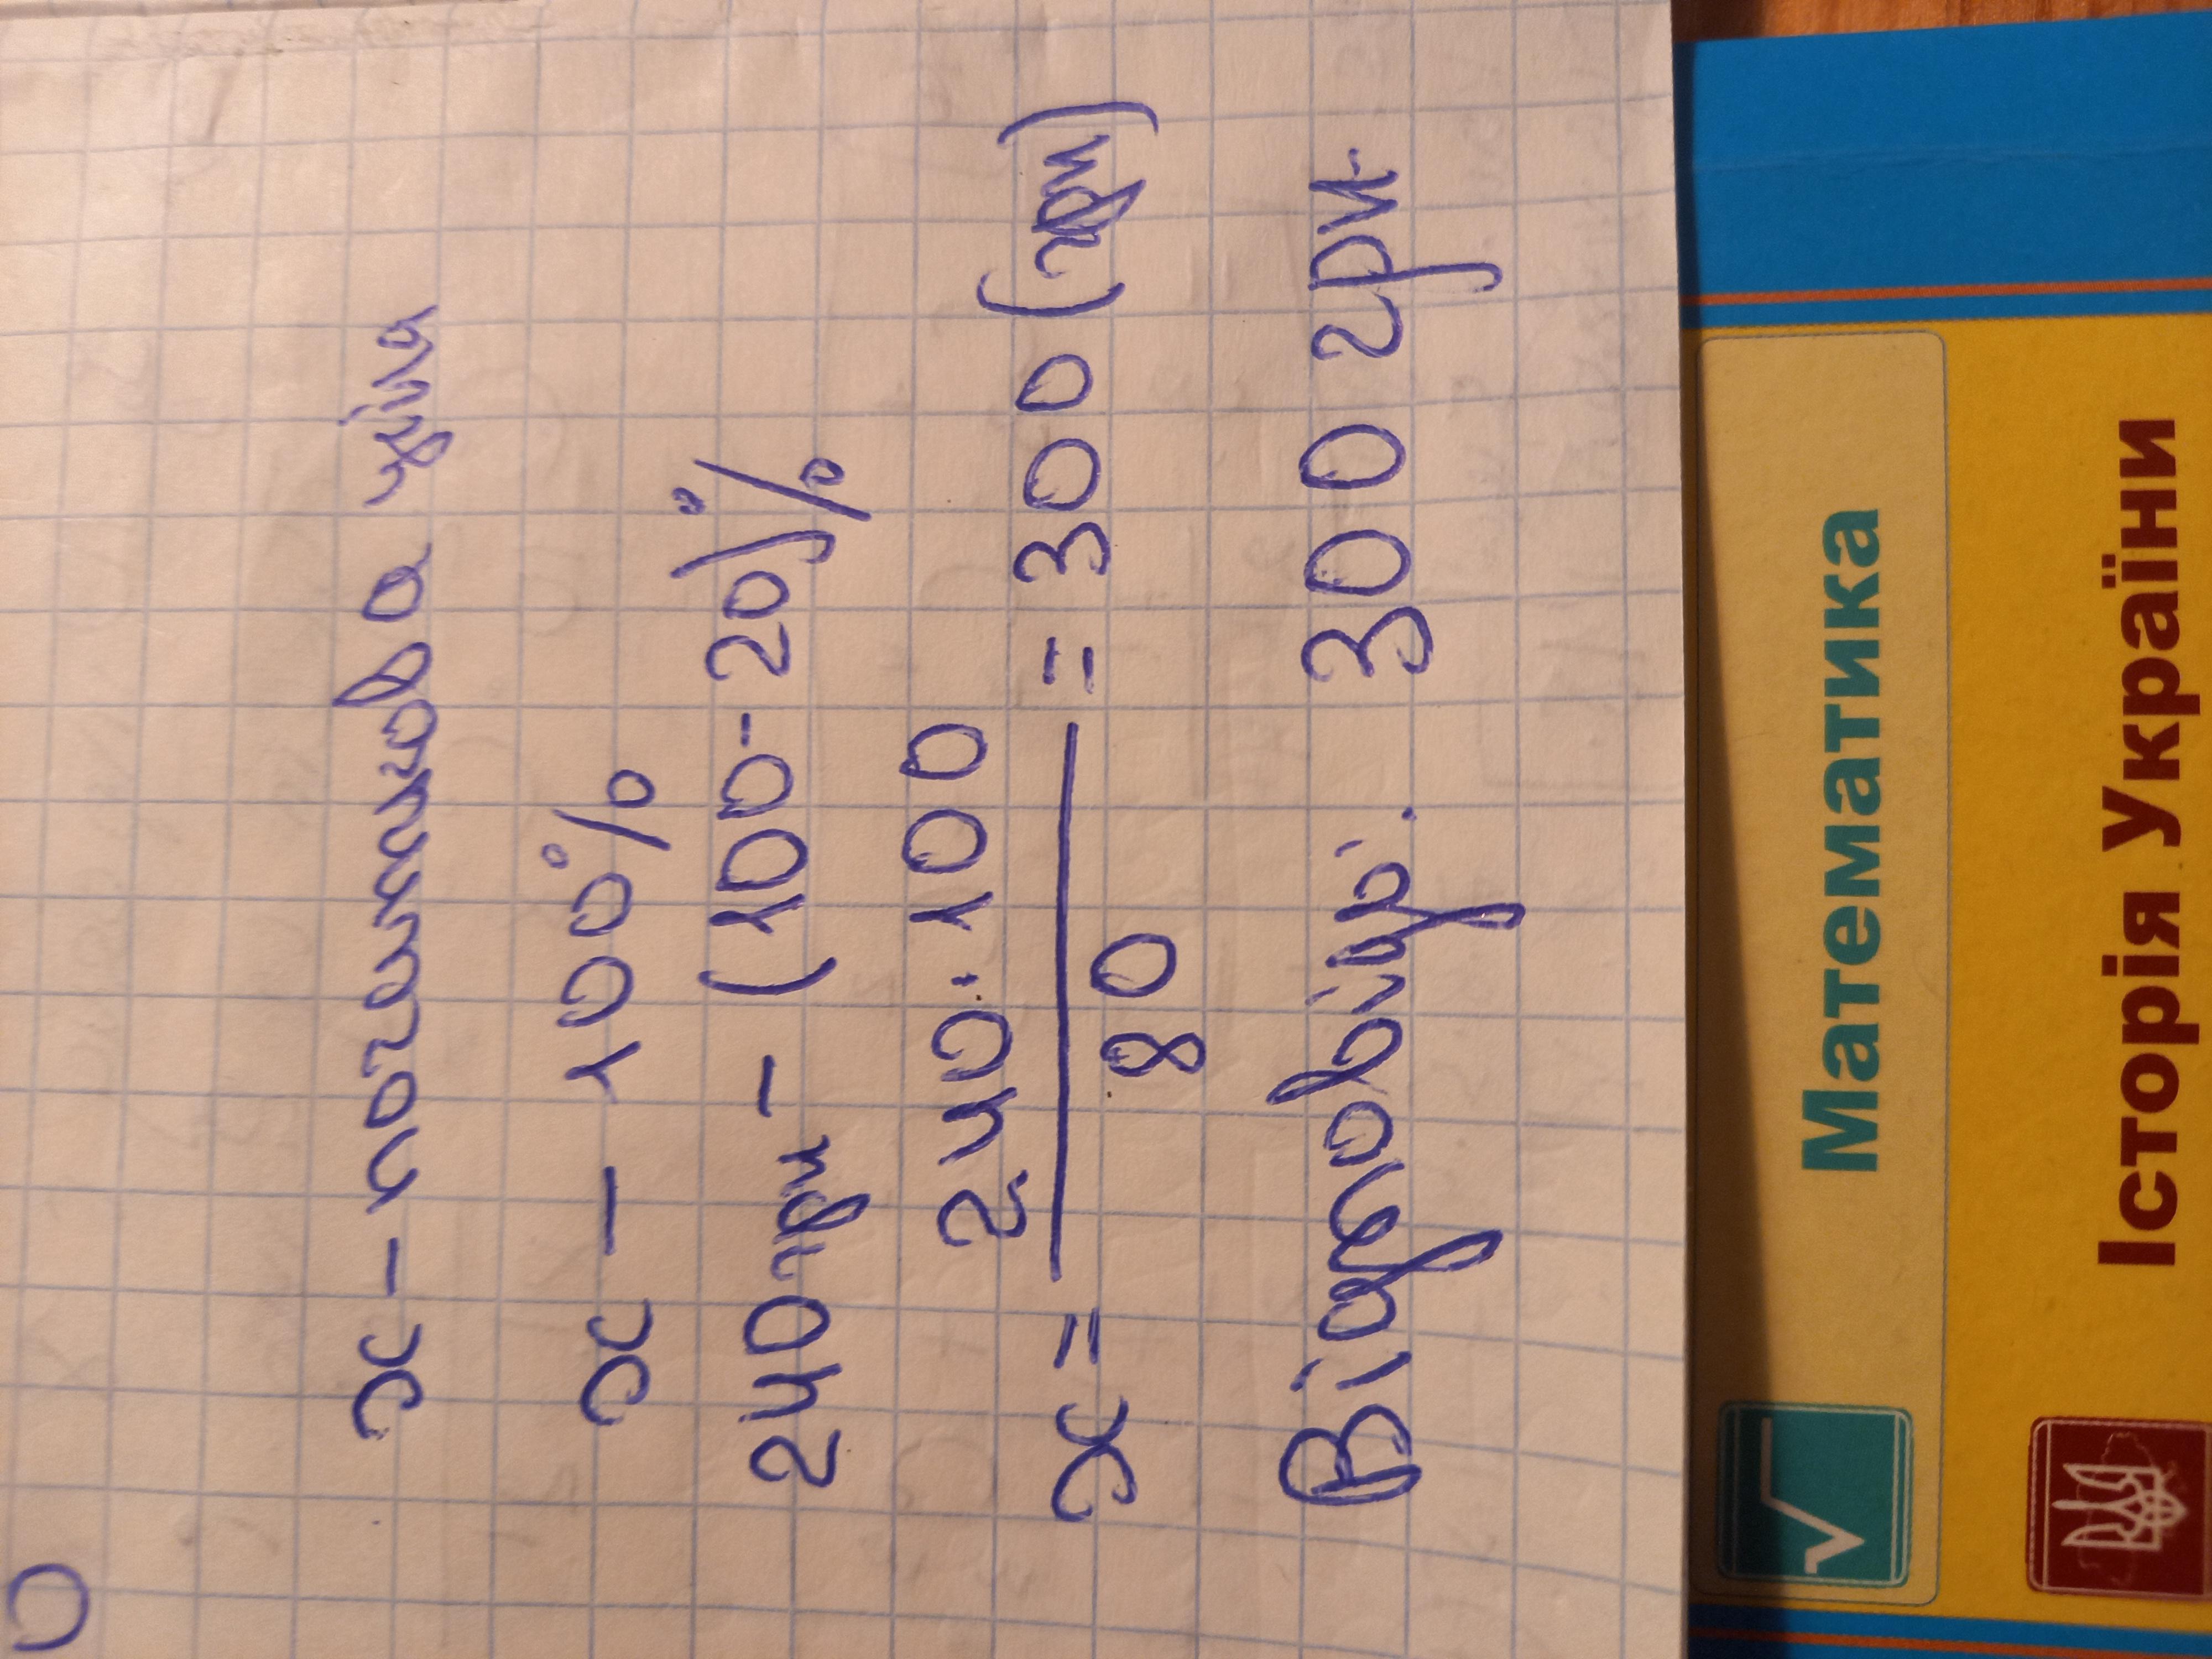 x - початкова ціна
x - 100%
240грн - (100-20)%
x = 240·100 / 80 = 300 (грн)
Відповідь: 300 грн.
Математика
Історія України